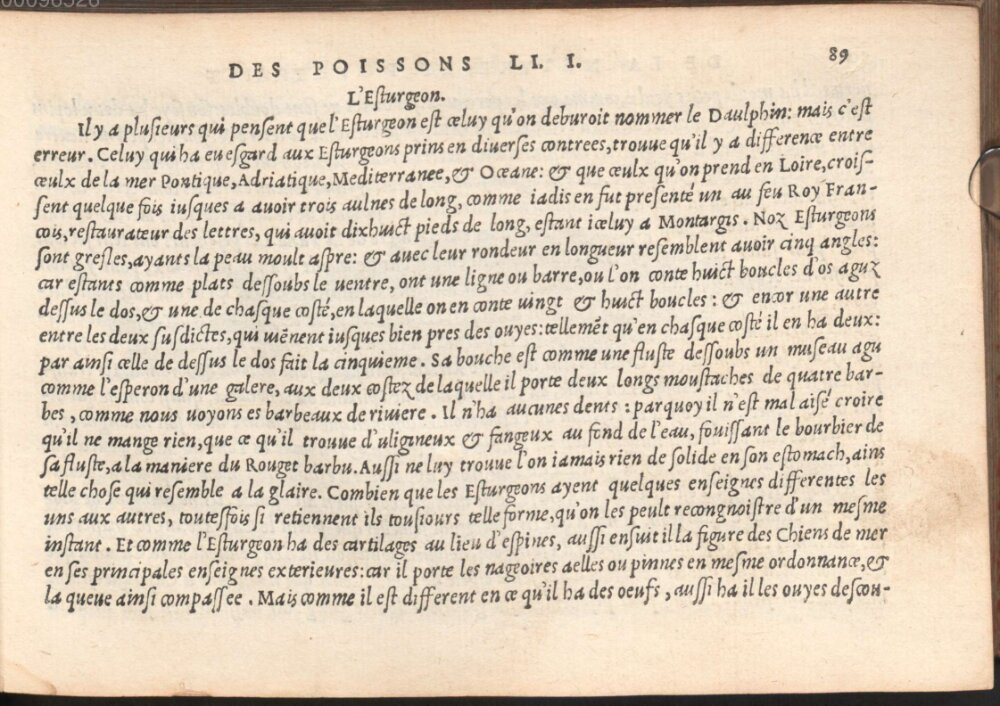 00096526
DES POISSONS LI. I. 89
L'Esturgeon.
Il y a plusieurs qui pensent que l'Esturgeon est celuy qu'on deburoit nommer le Daulphin: mais c'est
erreur. Celuy qui ha eu esgard aux Esturgeons prins en diuerses contrees, trouue qu'il y a difference entre
ceulx de la mer Pontique, Adriatique, Mediterranee, & Oceane: & que ceulx qu'on prend en Loire, crois-
sent quelque fois iusques a auoir trois aulnes de long, comme iadis en fut presenté un au feu Roy Fran-
cois, restaurateur des lettres, qui auoit dixhuict pieds de long, estant iceluy a Montargis. Noz Esturgeons
sont gresles, ayants la peau moult aspre: & auec leur rondeur en longueur resemblent auoir cinq angles:
car estants comme plats dessoubs le uentre, ont une ligne ou barre, ou l'on conte huict boucles d'os aguz
dessus le dos, & une de chasque costé, en laquelle on en conte uingt & huict boucles: & encor une autre
entre les deux susdictes, qui uiēnent iusques bien pres des ouyes: tellemēt qu'en chasque costé il en ha deux:
par ainsi celle de dessus le dos fait la cinquieme. Sa bouche est comme une fluste dessoubs un museau agu
comme l'esperon d'une galere, aux deux costez de laquelle il porte deux longs moustaches de quatre bar-
bes, comme nous uoyons es barbeaux de riuiere. Il n'ha aucunes dents: parquoy il n'est mal aisé croire
qu'il ne mange rien, que ce qu'il trouue d'uligineux & fangeux au fond de l'eau, fouissant le bourbier de
sa fluste, a la maniere du Rouget barbu. Aussi ne luy trouue l'on iamais rien de solide en son estomach, ains
telle chose qui resemble a la glaire. Combien que les Esturgeons ayent quelques enseignes differentes les
uns aux autres, toutesfois si retiennent ils tousiours telle forme, qu'on les peult recongnoistre d'un mesme
instant. Et comme l'Esturgeon ha des cartilages au lieu d'espines, aussi ensuit il la figure des Chiens de mer
en ses principales enseignes exterieures: car il porte les nageoires aelles ou pinnes en mesme ordonnance, &
la queue ainsi compassee. Mais comme il est different en ce qu'il ha des oeufs, aussi ha il les ouyes descou-